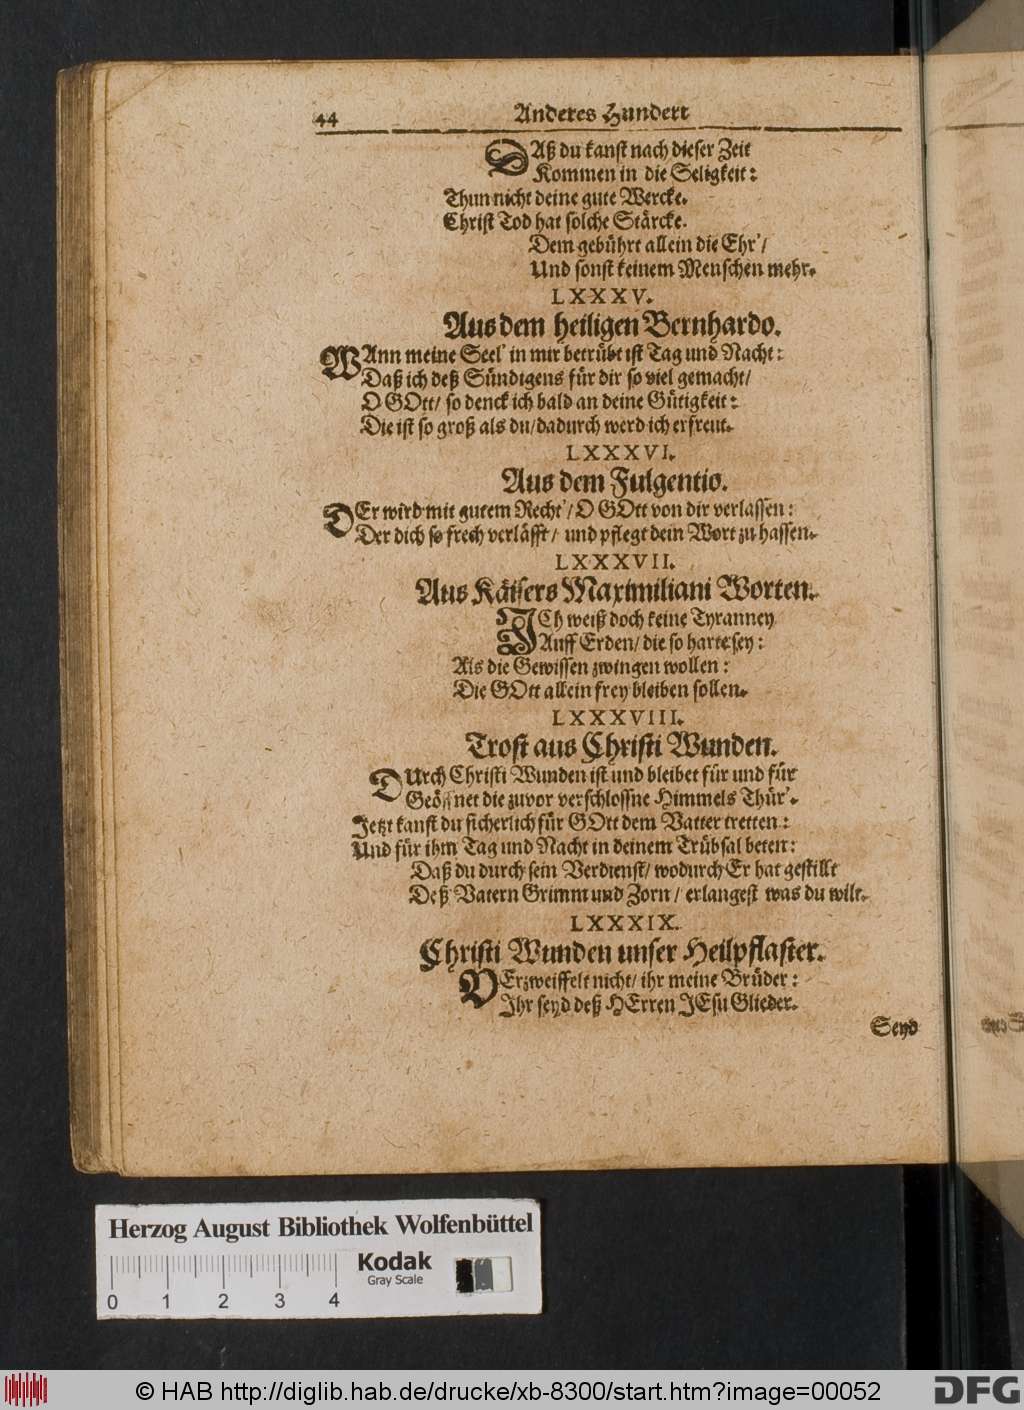 44 Anderes Hundert
DAß du kanst nach dieser Zeit
Kommen in die Seligkeit:
Thun nicht deine gute Wercke.
Christ Tod hat solche Stärcke.
Dem gebührt allein die Ehr'/
Und sonst keinem Menschen mehr.
LXXXV.
Aus dem heiligen Bernhardo.
WAnn meine Seel' in mir betrübt ist Tag und Nacht:
Daß ich deß Sündigens für dir so viel gemacht/
O GOtt/ so denck ich bald an deine Gütigkeit:
Die ist so groß als du/ dadurch werd ich erfreut.
LXXXVI.
Aus dem Fulgentio.
DEr wird mit gutem Recht'/ O GOtt von dir verlassen:
Der dich so frech verläfft/ und pflegt dein Wort zu hassen.
LXXXVII.
Aus Käisers Maximiliani Worten.
ICh weiß doch keine Tyranney
Auff Erden/ die so harte sey:
Als die Gewissen zwingen wollen:
Die GOtt allein frey bleiben sollen.
LXXXVIII.
Trost aus Christi Wunden.
DUrch Christi Wunden ist und bleibet für und für
Geöffnet die zuvor verschlossne Himmels Thür'.
Jetzt kanst du sicherlich für GOtt dem Vatter tretten:
Und für ihm Tag und Nacht in deinem Trübsal beten:
Daß du durch sein Verdienst/ wodurch Er hat gestillt
Deß Vatern Grimm und Zorn/ erlangest was du wilt.
LXXXIX.
Christi Wunden unser Heilpflaster.
VErzweiffelt nicht/ ihr meine Brüder:
Ihr seyd deß HErren JEsu Glieder.
Seyd
Herzog August Bibliothek Wolfenbüttel
Kodak
Gray Scale
0 1 2 3 4
© HAB http://diglib.hab.de/drucke/xb-8300/start.htm?image=00052
DFG